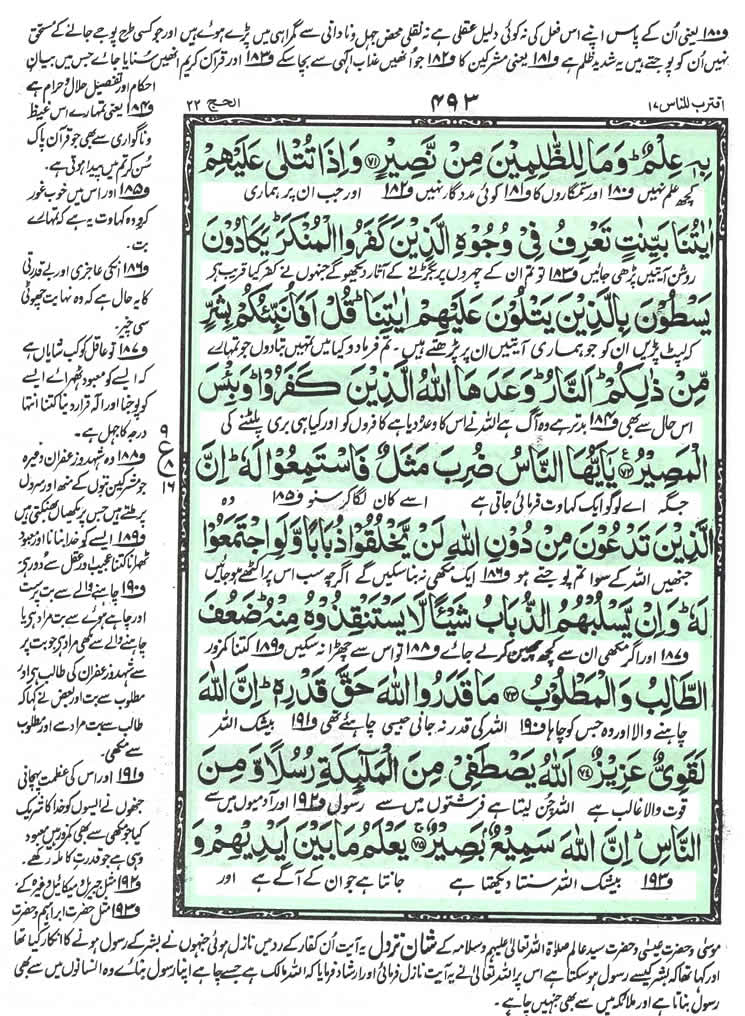 ف۱۸۰ یعنی اُن کے پاس اپنے اس فعل کی نہ کوئی دلیل عقلی ہے نہ نقلی محض جہل و نادانی سے گمراہی میں پڑے ہوئے ہیں اور جو کسی طرح پوجے جانے کے مستحق
نہیں اُن کو پوجتے ہیں یہ شدید ظلم ہے ف۱۸۱ یعنی مشرکین کا ف۱۸۲ جو اُنھیں عذاب الٰہی سے بچا سکے ف۱۸۳ اور قرآن کریم اُنھیں سُنایا جائے جس میں بیان
احکام اور تفصیل حلال و حرام ہے
ف۱۸۴ یعنی تمہارے اس غیظ
و ناگواری سے بھی جو قرآن پاک
سُن کر تم میں پیدا ہوتی ہے۔
ف۱۸۵ اور اس میں خوب غور
کرو وہ کہاوت یہ ہے کہ تمہارے
بت۔
ف۱۸۶ انکی عاجزی اور بے قدرتی
کا یہ حال ہے کہ وہ نہایت چھوٹی
سی چیز۔
ف۱۸۷ تو عاقل کو کب شایاں ہے
کہ ایسے کو معبود ٹھہرائے ایسے
کو پوجنا اور الٰہ قرار دینا کتنا انتہا
درجہ کا جہل ہے۔
ف۱۸۸ وہ شہد و زعفران وغیرہ
جو مشرکین بتوں کے منھ اور سروں
پر ملتے ہیں جس پر مکھیاں بھنکتی ہیں
ف۱۸۹ ایسے کو خدا بنانا اور معبود
ٹھہرانا کتنا عجیب اور عقل سے دور ہے
ف۱۹۰ چاہنے والے سے بت پرست
اور چاہے ہوئے سے بت مراد ہے یا
چاہنے والے سے مکھی مراد ہے جو بت پر
سے شہد و زعفران کی طالب ہے اور
مطلوب سے بت اور بعض نے کہا کہ
طالب سے بت مراد ہے اور مطلوب
سے مکھی۔
ف۱۹۱ اور اس کی عظمت نہ پہچانی
جنھوں نے ایسوں کو خدا کا شریک
کیا جو مکھی سے بھی کمزور ہیں معبود
وہی ہے جو قدرت کاملہ رکھے۔
ف۱۹۲ مثل جبریل و میکائیل وغیرہ کے
ف۱۹۳ مثل حضرت ابراہیم و حضرت
اقترب للناس ۱۷
۴۹۳
الحج ۲۲
بِهٖ عِلْمٌ ؕ وَمَا لِلظّٰلِمِیْنَ مِنْ نَّصِیْرٍ ﴿۷۱﴾ وَاِذَا تُتْلٰی عَلَیْهِمْ
کچھ علم نہیں ف۱۸۰ اور ستمگاروں کا ف۱۸۱ کوئی مددگار نہیں ف۱۸۲ اور جب ان پر ہماری
اٰیٰتُنَا بَیِّنٰتٍ تَعْرِفُ فِیْ وُجُوْهِ الَّذِیْنَ كَفَرُوا الْمُنْكَرَ ؕ یَكَادُوْنَ
روشن آیتیں پڑھی جائیں ف۱۸۳ تو تم ان کے چہروں پر بگڑنے کے آثار دیکھو گے جنہوں نے کفر کیا قریب ہے کہ
یَسْطُوْنَ بِالَّذِیْنَ یَتْلُوْنَ عَلَیْهِمْ اٰیٰتِنَا ؕ قُلْ اَفَاُنَبِّئُكُمْ بِشَرٍّ
کہ لپٹ پڑیں ان کو جو ہماری آیتیں ان پر پڑھتے ہیں۔ تم فرما دو کیا میں تمہیں بتا دوں جو تمہارے
مِّنْ ذٰلِكُمْ ؕ اَلنَّارُ ؕ وَعَدَهَا اللّٰهُ الَّذِیْنَ كَفَرُوْا ؕ وَبِئْسَ
اس حال سے بھی ف۱۸۴ بدتر ہے وہ آگ ہے اللہ نے اس کا وعدہ دیا ہے کافروں کو اور کیا ہی بری پلٹنے کی
الْمَصِیْرُ ﴿۷۲﴾ یٰۤاَیُّهَا النَّاسُ ضُرِبَ مَثَلٌ فَاسْتَمِعُوْا لَهٗ ؕ اِنَّ
جگہ اے لوگو ایک کہاوت فرمائی جاتی ہے اسے کان لگا کر سنو ف۱۸۵ وہ
۹
ع
۸
۱۶
الَّذِیْنَ تَدْعُوْنَ مِنْ دُوْنِ اللّٰهِ لَنْ یَّخْلُقُوْا ذُبَابًا وَّلَوِ اجْتَمَعُوْا
جنھیں اللہ کے سوا تم پوجتے ہو ایک مکھی نہ بنا سکیں گے اگرچہ سب اس پر اکٹھے ہو جائیں
لَهٗ ؕ وَاِنْ یَّسْلُبْهُمُ الذُّبَابُ شَیْـًٔا لَّا یَسْتَنْقِذُوْهُ مِنْهُ ؕ ضَعُفَ
ف۱۸۷ اور اگر مکھی ان سے کچھ چھین کر لے جائے ف۱۸۸ تو اس سے چھڑا نہ سکیں ف۱۸۹ کتنا کمزور
الطَّالِبُ وَالْمَطْلُوْبُ ﴿۷۳﴾ مَا قَدَرُوا اللّٰهَ حَقَّ قَدْرِهٖ ؕ اِنَّ اللّٰهَ
چاہنے والا اور وہ جس کو چاہا ف۱۹۰ اللہ کی قدر نہ جانی جیسی چاہئے تھی ف۱۹۱ بیشک اللہ
لَقَوِیٌّ عَزِیْزٌ ﴿۷۴﴾ اَللّٰهُ یَصْطَفِیْ مِنَ الْمَلٰٓئِكَةِ رُسُلًا وَّمِنَ
قوت والا غالب ہے اللہ چن لیتا ہے فرشتوں میں سے رسول ف۱۹۲ اور آدمیوں میں سے
النَّاسِ ؕ اِنَّ اللّٰهَ سَمِیْعٌۢ بَصِیْرٌ ﴿۷۵﴾ یَعْلَمُ مَا بَیْنَ اَیْدِیْهِمْ وَ
ف۱۹۳ بیشک اللہ سنتا دیکھتا ہے جانتا ہے جو ان کے آگے ہے اور
موسیٰ و حضرت عیسیٰ و حضرت سید عالم صلاۃ اللہ تعالیٰ علیہم و سلامہ کے شان نزول یہ آیت اُن کفار کے رد میں نازل ہوئی جنہوں نے بشر کے رسول ہونے کا انکار کیا تھا
اور کہا تھا کہ بشر کیسے رسول ہو سکتا ہے اس پر اللہ تعالیٰ نے یہ آیت نازل فرمائی اور ارشاد فرمایا کہ اللہ مالک ہے جسے چاہے اپنا رسول بنائے وہ انسانوں میں سے بھی
رسول بناتا ہے اور ملائکہ میں سے بھی جنہیں چاہے۔